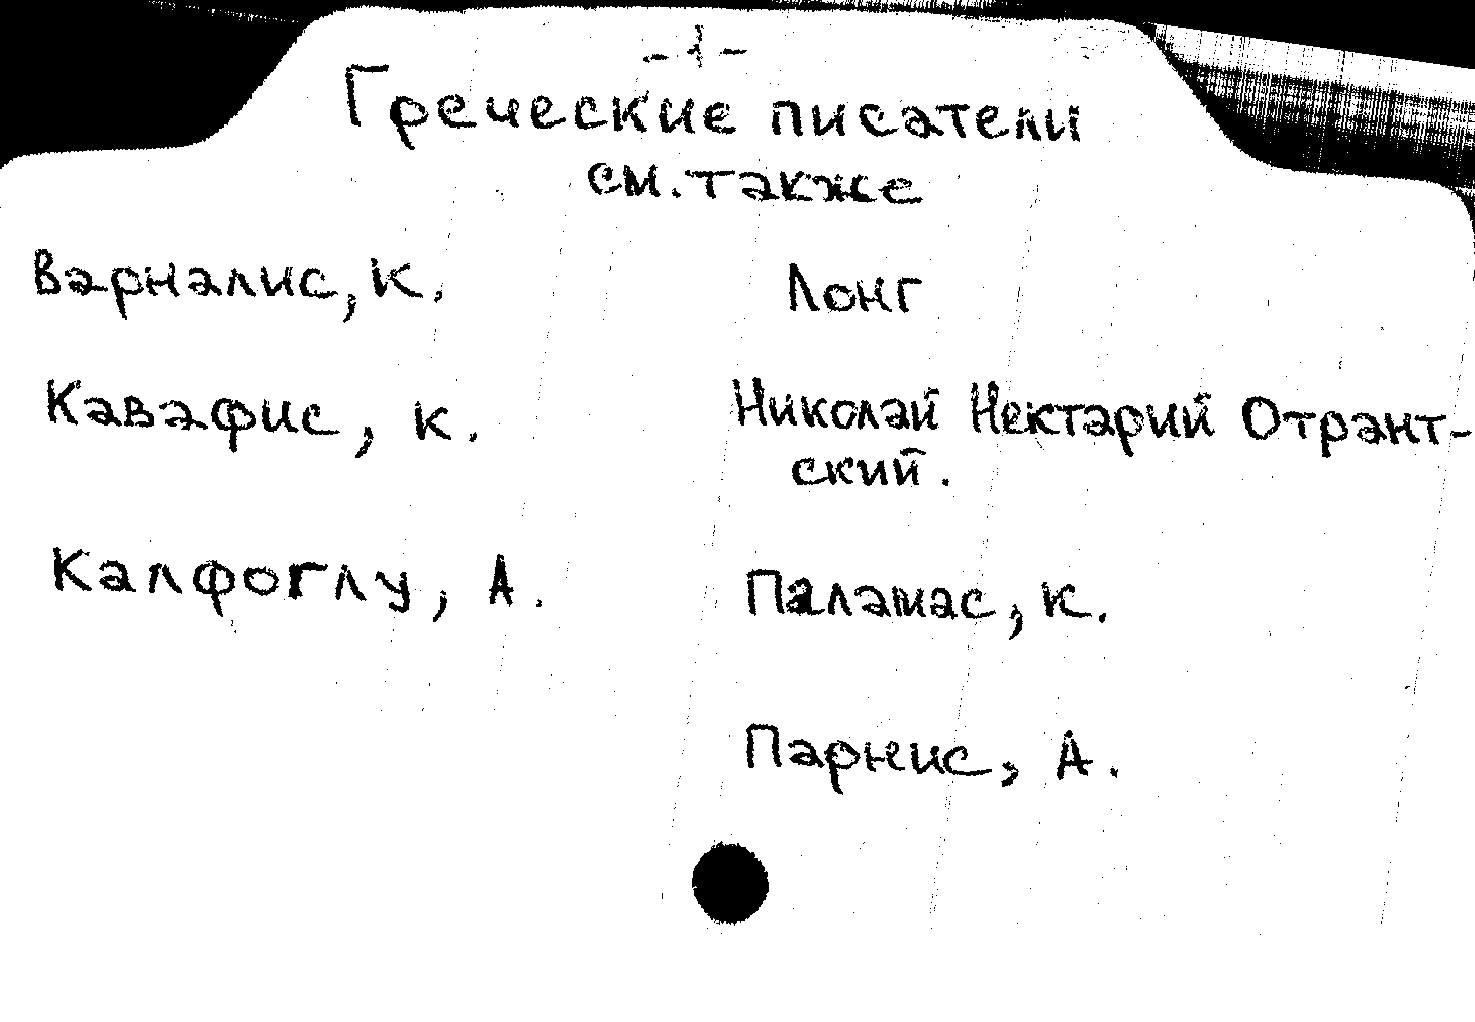 -1-
Греческие писатели
см. также
Варналис, К.
Кавафис, К.
Калфоглу, А.
Лонг
Николай Нектарий Отрант-
ский.
Паламас, К.
Парнис, А.